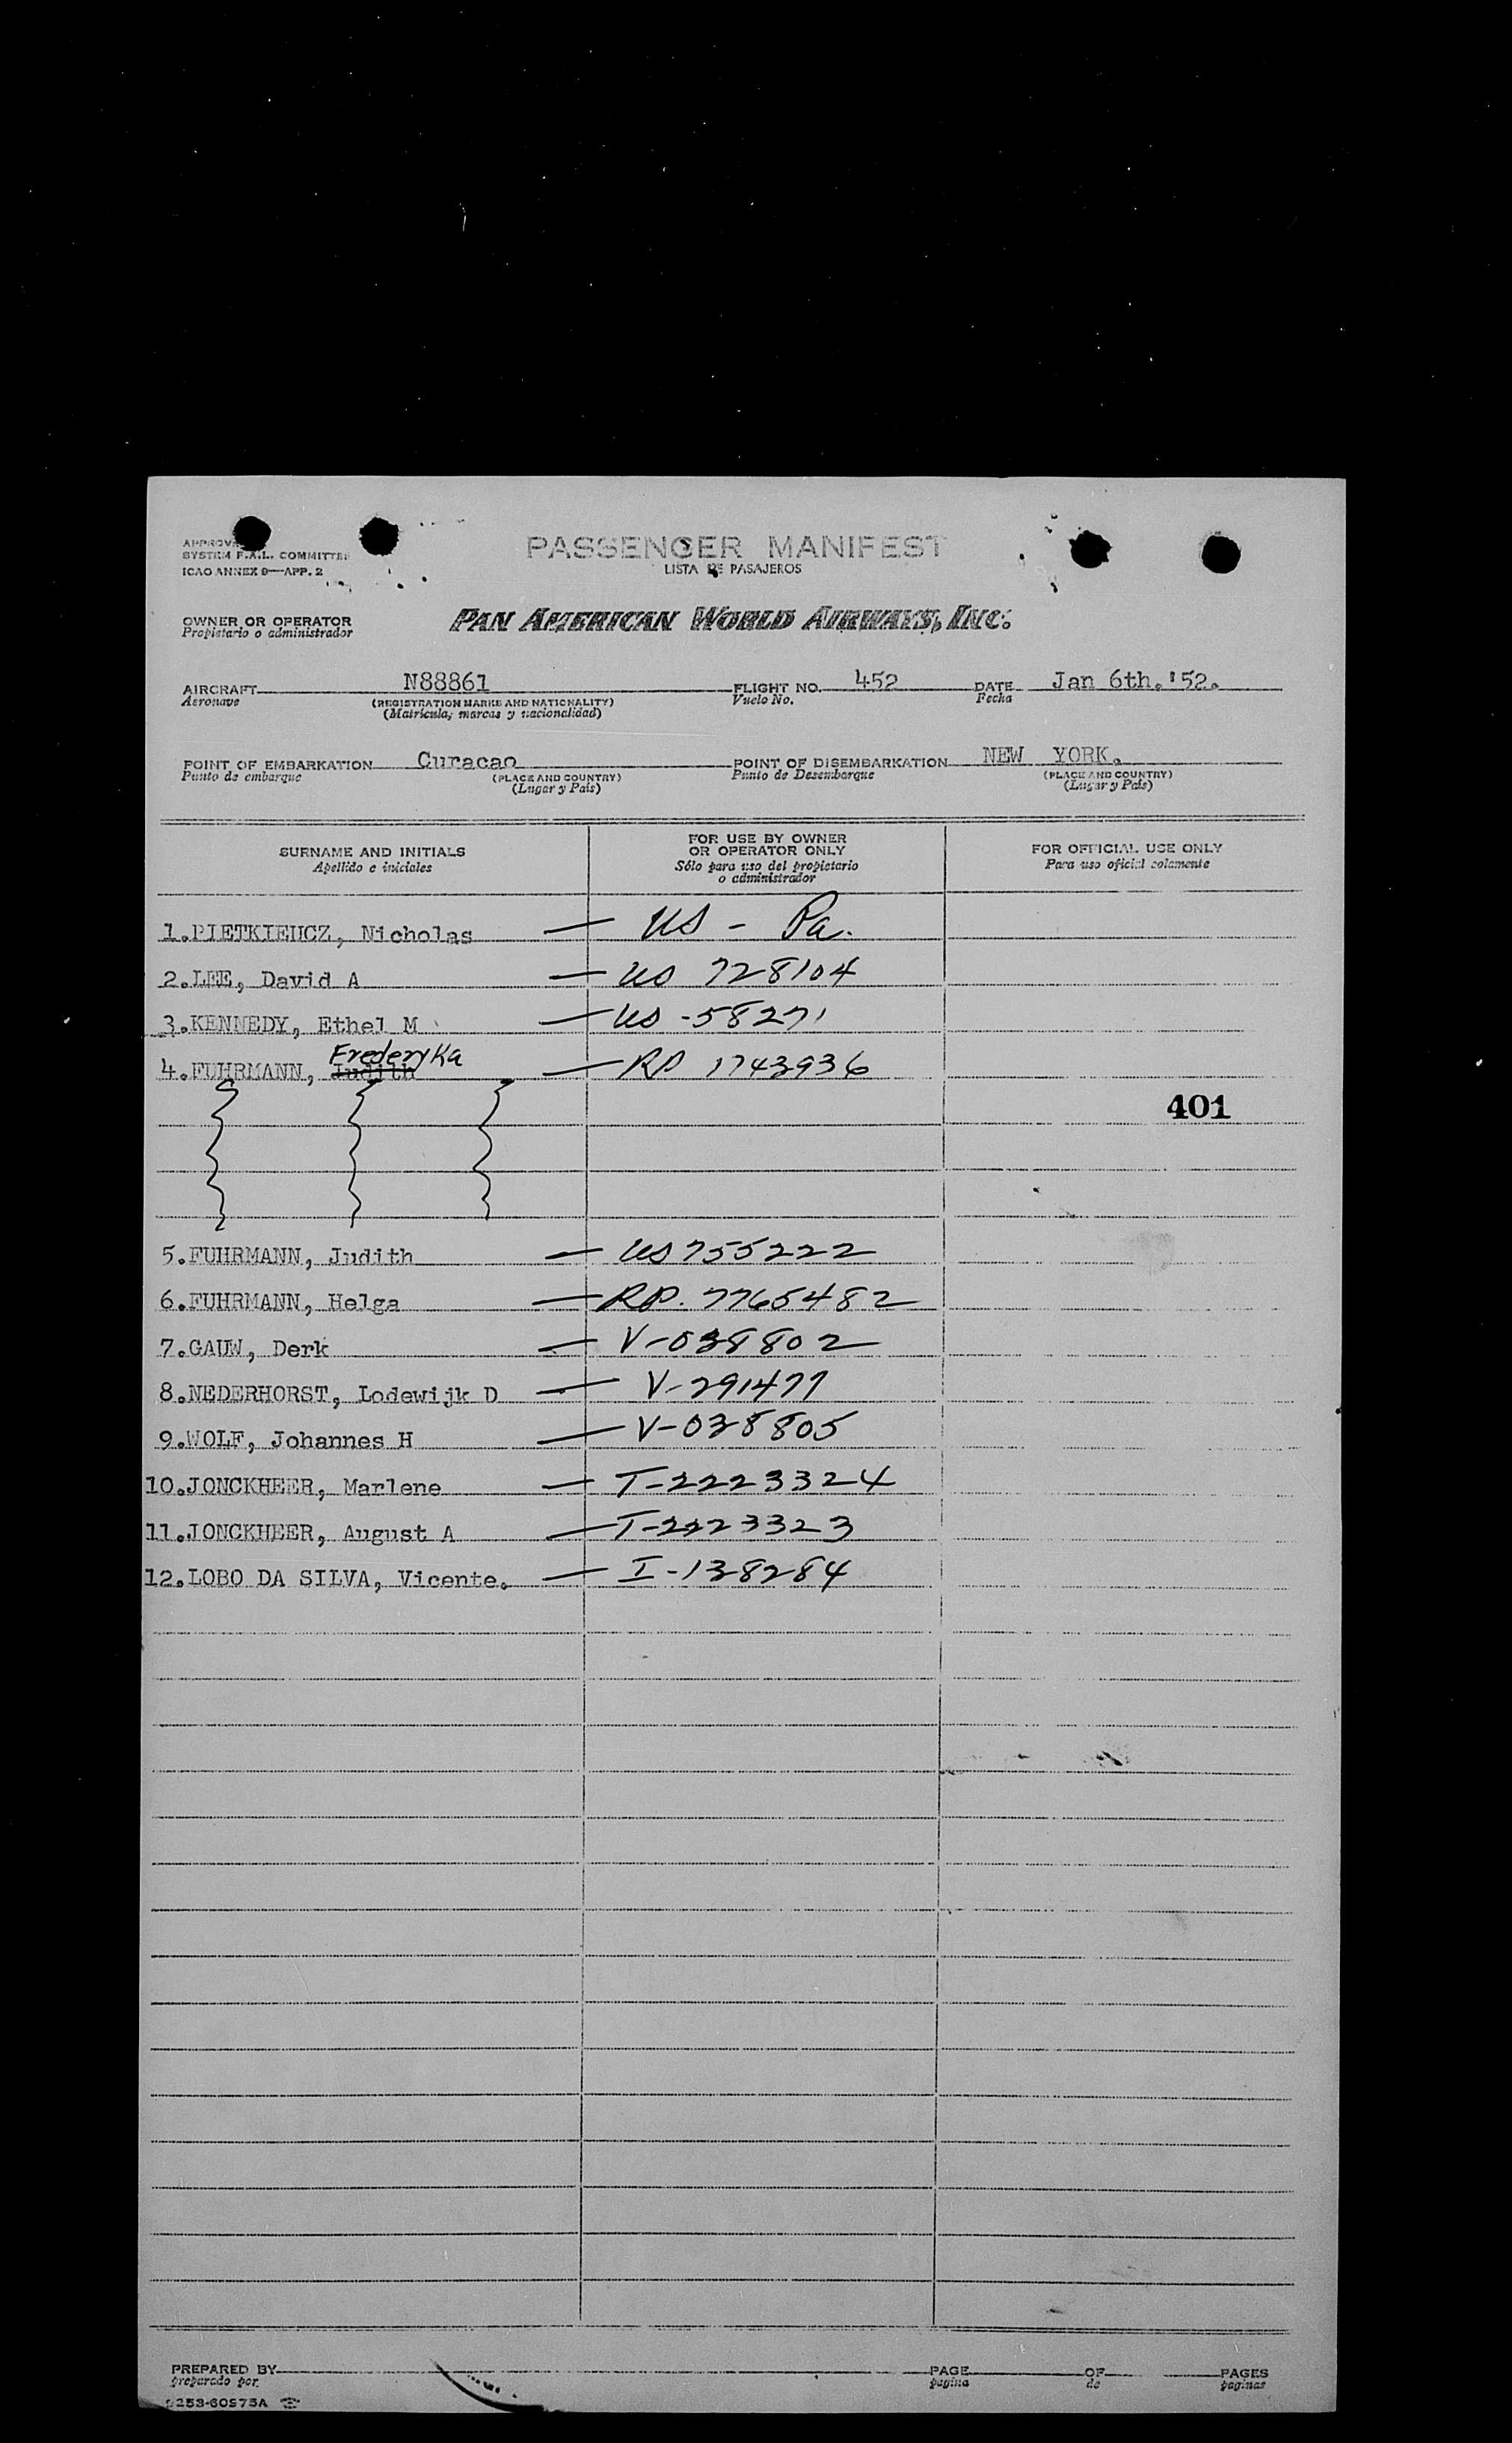 APPROVE
SYSTEM F.A.L. COMMITTEE
ICAO ANNEX 9—APP. 2
PASSENGER MANIFEST
LISTA DE PASAJEROS
OWNER OR OPERATOR
Propietario o administrador
PAN AMERICAN WORLD AIRWAYS, INC.
AIRCRAFT N88861 FLIGHT NO. 452 DATE Jan 6th.'52.
Aeronave (REGISTRATION MARKS AND NATIONALITY) Vuelo No. Fecha
(Matrícula, marcas y nacionalidad)
POINT OF EMBARKATION Curacao POINT OF DISEMBARKATION NEW YORK.
Punto de embarque (PLACE AND COUNTRY) Punto de Desembarque (PLACE AND COUNTRY)
(Lugar y País) (Lugar y País)
SURNAME AND INITIALS
Apellido e iniciales
FOR USE BY OWNER
OR OPERATOR ONLY
Sólo para uso del propietario
o administrador
FOR OFFICIAL USE ONLY
Para uso oficial solamente
1.PIETKIEHCZ, Nicholas — US - Pa.
2.LEE, David A — US 728104
3.KENNEDY, Ethel M — US -58271
Frederyka
4.FUHRMANN, Judith — RP 1743936
401
5.FUHRMANN, Judith — US 755222
6.FUHRMANN, Helga — RP. 7765482
7.GAUW, Derk — V-038802
8.NEDERHORST, Lodewijk D — V-291477
9.WOLF, Johannes H — V-038805
10.JONCKHEER, Marlene — T-2223324
11.JONCKHEER, August A — T-2223323
12.LOBO DA SILVA, Vicente. — I-138284
PREPARED BY PAGE OF PAGES
preparado por página de páginas
253-60973A